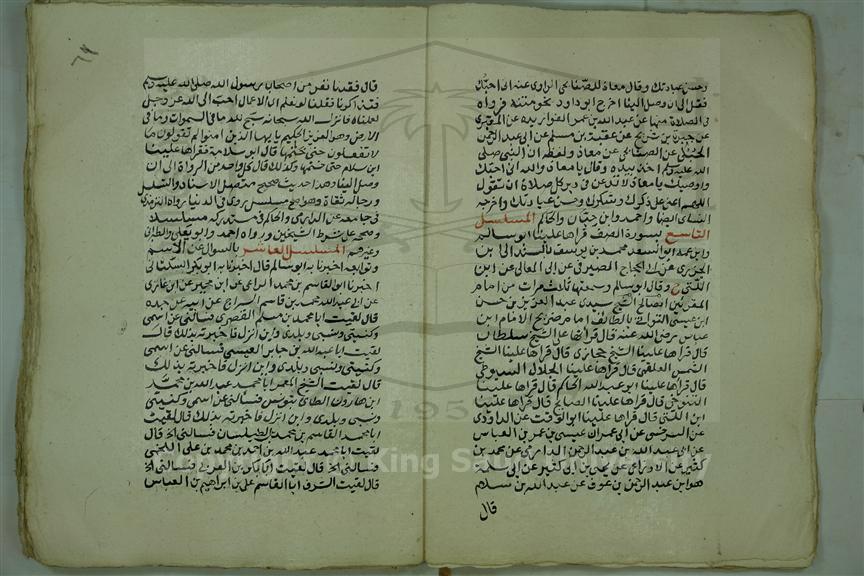 وحسن عبادتك وقال معاذ للصنابحي الراوي عنه اني احبك
فقل الى ان وصل الينا اخرج ابو داود نحو متنه فرواه
في الصلاة منها عن عبيد الله بن عمر القواريري عن المقري
عن حيوة بن شريح عن عقبة بن مسلم عن ابي عبد الرحمن
الحبلي عن الصنابحي عن معاذ ولفظه ان النبي صلى
الله عليه وسلم اخذ بيده وقال يا معاذ والله اني احبك
واوصيك يا معاذ لا تدعن في دبر كل صلاة ان تقول
اللهم اعني على ذكرك وشكرك وحسن عبادتك واخرجه
النسائي ايضا واحمد وابن حبان والحاكم المسلسل
التاسع بسورة الصف قراها علينا ابو سالم
وابن عمه ابو السعد محمد بن يوسف بالسند الى ابن
الجزري عن ابي الحجاج المصير في عن ابي المعالي عن ابن
اللتي ح وقال ابو سالم وسمعتها ثلث مرات من امام
المقربين الصالح الشيخ سيدي عبد العزيز بن حسن
ابن عيسى التواتي بالطائف امام ضريح الامام ابن
عباس رضي الله عنه قال قراها علي الشيخ سلطان
قال قراها علينا الشيخ حجازي قال قراها علينا الشيخ
الشمس العلقمي قال قراها علينا الجلال السيوطي
قال قراها علينا ابو عبد الله الحاكم قال قراها علينا
التنوخي قال قراها علينا الصالح قال قراها علينا
ابن اللتي قال قراها علينا ابو الوقت عن الداودي
عن السرخسي عن ابي عمران عيسى بن عمر بن العباس
عن ابي عبد الله بن عبد الرحمن الدارمي عن محمد بن
كثير عن الاوزاعي عن يحيى بن ابي كثير عن ابي سلمة
هو ابن عبد الرحمن بن عوف عن عبد الله بن سلام
قال
قال قعدنا نفر من اصحاب رسول الله صلى الله عليه وسلم
فتذاكرنا فقلنا لو نعلم اي الاعمال احب الى الله عز وجل
لعملناه فانزل الله سبحانه سبح لله ما في السموات وما في
الارض وهو العزيز الحكيم يايها الذين امنوا لم تقولون ما
لا تفعلون حتى ختمها قال ابو سلمة فقراها علينا
ابن سلام حتى ختمها وكذلك قال كل واحد من الرواة الى ان
وصل الينا وهذا حديث صحيح متصل الاسناد والتسلسل
ورجاله ثقاة وهو اصح مسلسل روي في الدنيا رواه الترمذي
في جامعه عن الدارمي والحاكم في مستدركه مسلسلا
وصححه على شرط الشيخين ورواه احمد وابو يعلى والطبراني
وغيرهم المسلسل العاشر بالسؤال عن الاسم
وتوابعه اخبرنا به ابو سالم قال اخبرنا به ابو بكر السكتاني
اخبرنا ابو القاسم بن محمد الراعي عن ابن مجبر عن ابن غازي
عن ابي عبد الله محمد بن قاسم السراج عن ابيه عن جده
قال لقيت ابا محمد بن مسلم القصري فسالني عن اسمي
وكنيتي ونسبي وبلدي واين انزل فاخبرته بذلك قال
لقيت ابا عبد الله بن جابر العيسي فسالني عن اسمي
وكنيتي ونسبي وبلدي واين انزل فاخبرته بذلك
قال لقيت الشيخ المعمر ابا محمد عبد الله بن محمد
ابن هارون الطائي بتونس فسالني عن اسمي وكنيتي
ونسبي وبلدي واين انزل فاخبرته بذلك قال لقيت
ابا محمد القاسم بن محمد الطيلسان فسالني الخ قال
لقيت ابا محمد عبد الله بن احمد بن محمد بن علي اللخمي
فسالني الخ قال لقيت ابا بكر بن العربي فسالني الخ
قال لقيت الشرف ابا القاسم علي بن ابراهيم بن العباس